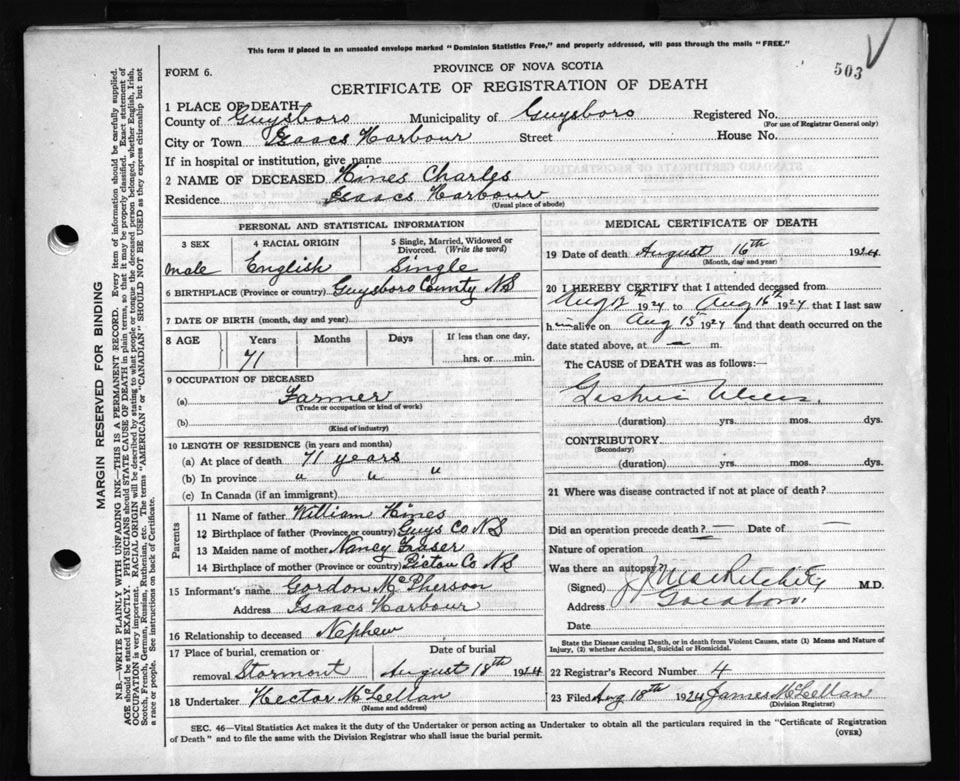 This form if placed in an unsealed envelope marked "Dominion Statistics Free," and properly addressed, will pass through the mails "FREE."
503
FORM 6.
PROVINCE OF NOVA SCOTIA
CERTIFICATE OF REGISTRATION OF DEATH
1 PLACE OF DEATH
County of Guysboro Municipality of Guysboro Registered No.
(For use of Registrar General only)
City or Town Isaacs Harbour Street House No.
If in hospital or institution, give name
2 NAME OF DECEASED Hines Charles
Residence Isaacs Harbour
(Usual place of abode)
PERSONAL AND STATISTICAL INFORMATION
3 SEX 4 RACIAL ORIGIN 5 Single, Married, Widowed or Divorced. (Write the word)
male English Single
6 BIRTHPLACE (Province or country) Guysboro County NS
7 DATE OF BIRTH (month, day and year)
8 AGE Years Months Days If less than one day,
71 hrs. or min.
9 OCCUPATION OF DECEASED
(a) Farmer
(Trade or occupation or kind of work)
(b)
(Kind of industry)
10 LENGTH OF RESIDENCE (in years and months)
(a) At place of death 71 years
(b) In province " " "
(c) In Canada (if an immigrant)
Parents
11 Name of father William Hines
12 Birthplace of father (Province or country) Guys Co NS
13 Maiden name of mother Nancy Fraser
14 Birthplace of mother (Province or country) Pictou Co NS
15 Informant's name Gordon McPherson
Address Isaacs Harbour
16 Relationship to deceased Nephew
17 Place of burial, cremation or Date of burial
removal Stormont August 18th 1924
18 Undertaker Hector McLellan
(Name and address)
MEDICAL CERTIFICATE OF DEATH
19 Date of death August 16th 1924
(Month, day and year)
20 I HEREBY CERTIFY that I attended deceased from
Aug 1924 to Aug 16th 1924 that I last saw
him alive on Aug 15 1924 and that death occurred on the
date stated above, at — m.
The CAUSE of DEATH was as follows:
Gastric Ulcer.
(duration) yrs. mos. dys.
CONTRIBUTORY
(Secondary)
(duration) yrs. mos. dys.
21 Where was disease contracted if not at place of death?
Did an operation precede death? — Date of —
Nature of operation
Was there an autopsy?
(Signed) M.D.
Address
Date
State the Disease causing Death, or in death from Violent Causes, state (1) Means and Nature of
Injury, (2) whether Accidental, Suicidal or Homicidal.
22 Registrar's Record Number 4
23 Filed Aug 18th 1924 James McLellan
(Division Registrar)
SEC. 46—Vital Statistics Act makes it the duty of the Undertaker or person acting as Undertaker to obtain all the particulars required in the "Certificate of Registration
of Death" and to file the same with the Division Registrar who shall issue the burial permit.
(OVER)
MARGIN RESERVED FOR BINDING
N.B.—WRITE PLAINLY WITH UNFADING INK—THIS IS A PERMANENT RECORD. Every item of information should be carefully supplied.
AGE should be stated EXACTLY. PHYSICIANS should STATE CAUSE OF DEATH in plain terms, so that it may be properly classified. Exact statement of
OCCUPATION is very important. RACIAL ORIGIN will be described by stating to what people or tongue the deceased person belonged, whether English, Irish,
Scotch, French, German, Russian, Ruthenian, etc. The terms "AMERICAN" or "CANADIAN" SHOULD NOT BE USED as they express citizenship but not
a race or people. See instructions on back of Certificate.